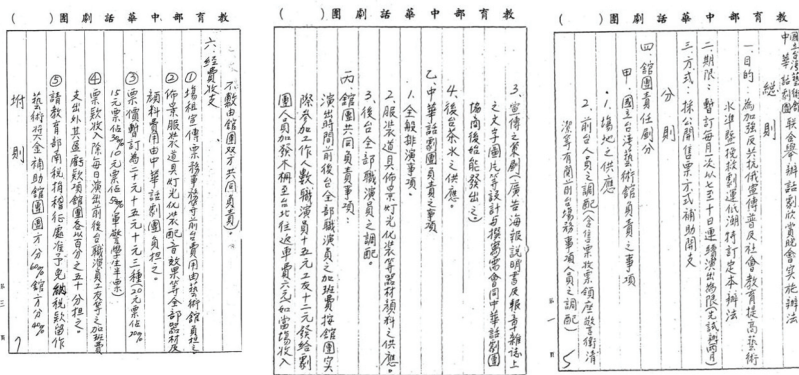 教育部中華話劇團（　）
國立台湾藝術館
中華話劇團 联合舉辦話劇欣賞晚會实施辦法
總則
一.目的：為加強反共抗俄宣傳普及社会教育提高藝術
水準並挽救劇運低潮特訂定本辦法
二.期限：暫訂每月一次以七至十日連續演出為限先試辦兩月
三.方式：採公開售票方式補助開支
分則
四.館團責任劃分
甲.國立台湾藝術館負責之事項
1.場地之供應。
2.前台人員之調配（含售票收票領座警衛清
潔等有関前台場務事項人員之調配）
第一頁
5
教育部中華話劇團（　）
3.宣傳之策劃（廣告海報説明書及報章雜誌上
之文字圖片等設計与撰寫需會同中華話劇團
協商後始能發出之）
4.後台茶水之供應。
乙.中華話劇團負責之事項
1.全般排演事項。
2.服裝道具佈景灯光化裝等器材顏料之供應。
3.後台全部職演員之調配。
丙.館團共同負責事項：
演出時間前後台全部職演員之加班費按館團实
際参加工作人數職演員十五元工友十二元發給劇
團人員加發木柵至台北往返車費六元如當場收入
教育部中華話劇團（　）
不敷由館團双方共同負責。
六.經費收支
①場租宣傳票務事務等前台費用由藝術館負担之
②佈景服裝道具灯光化裝配音效果等全部器材及
顏料費用由中華話劇團負担之。
③票價暫訂為二十元十五元十元三種20元票佔20%
15元票佔30%10元票佔50%（軍警學生半票）
④票款收入除每日演出前後台職演員工友等之加班費
支出外其盈虧款項館團各以百分之五十分担之。
⑤請教育部函税捐稽征處准予免繳税款留作
藝術獎金補助館團團方分60%館方分40%
附則
第三頁
7